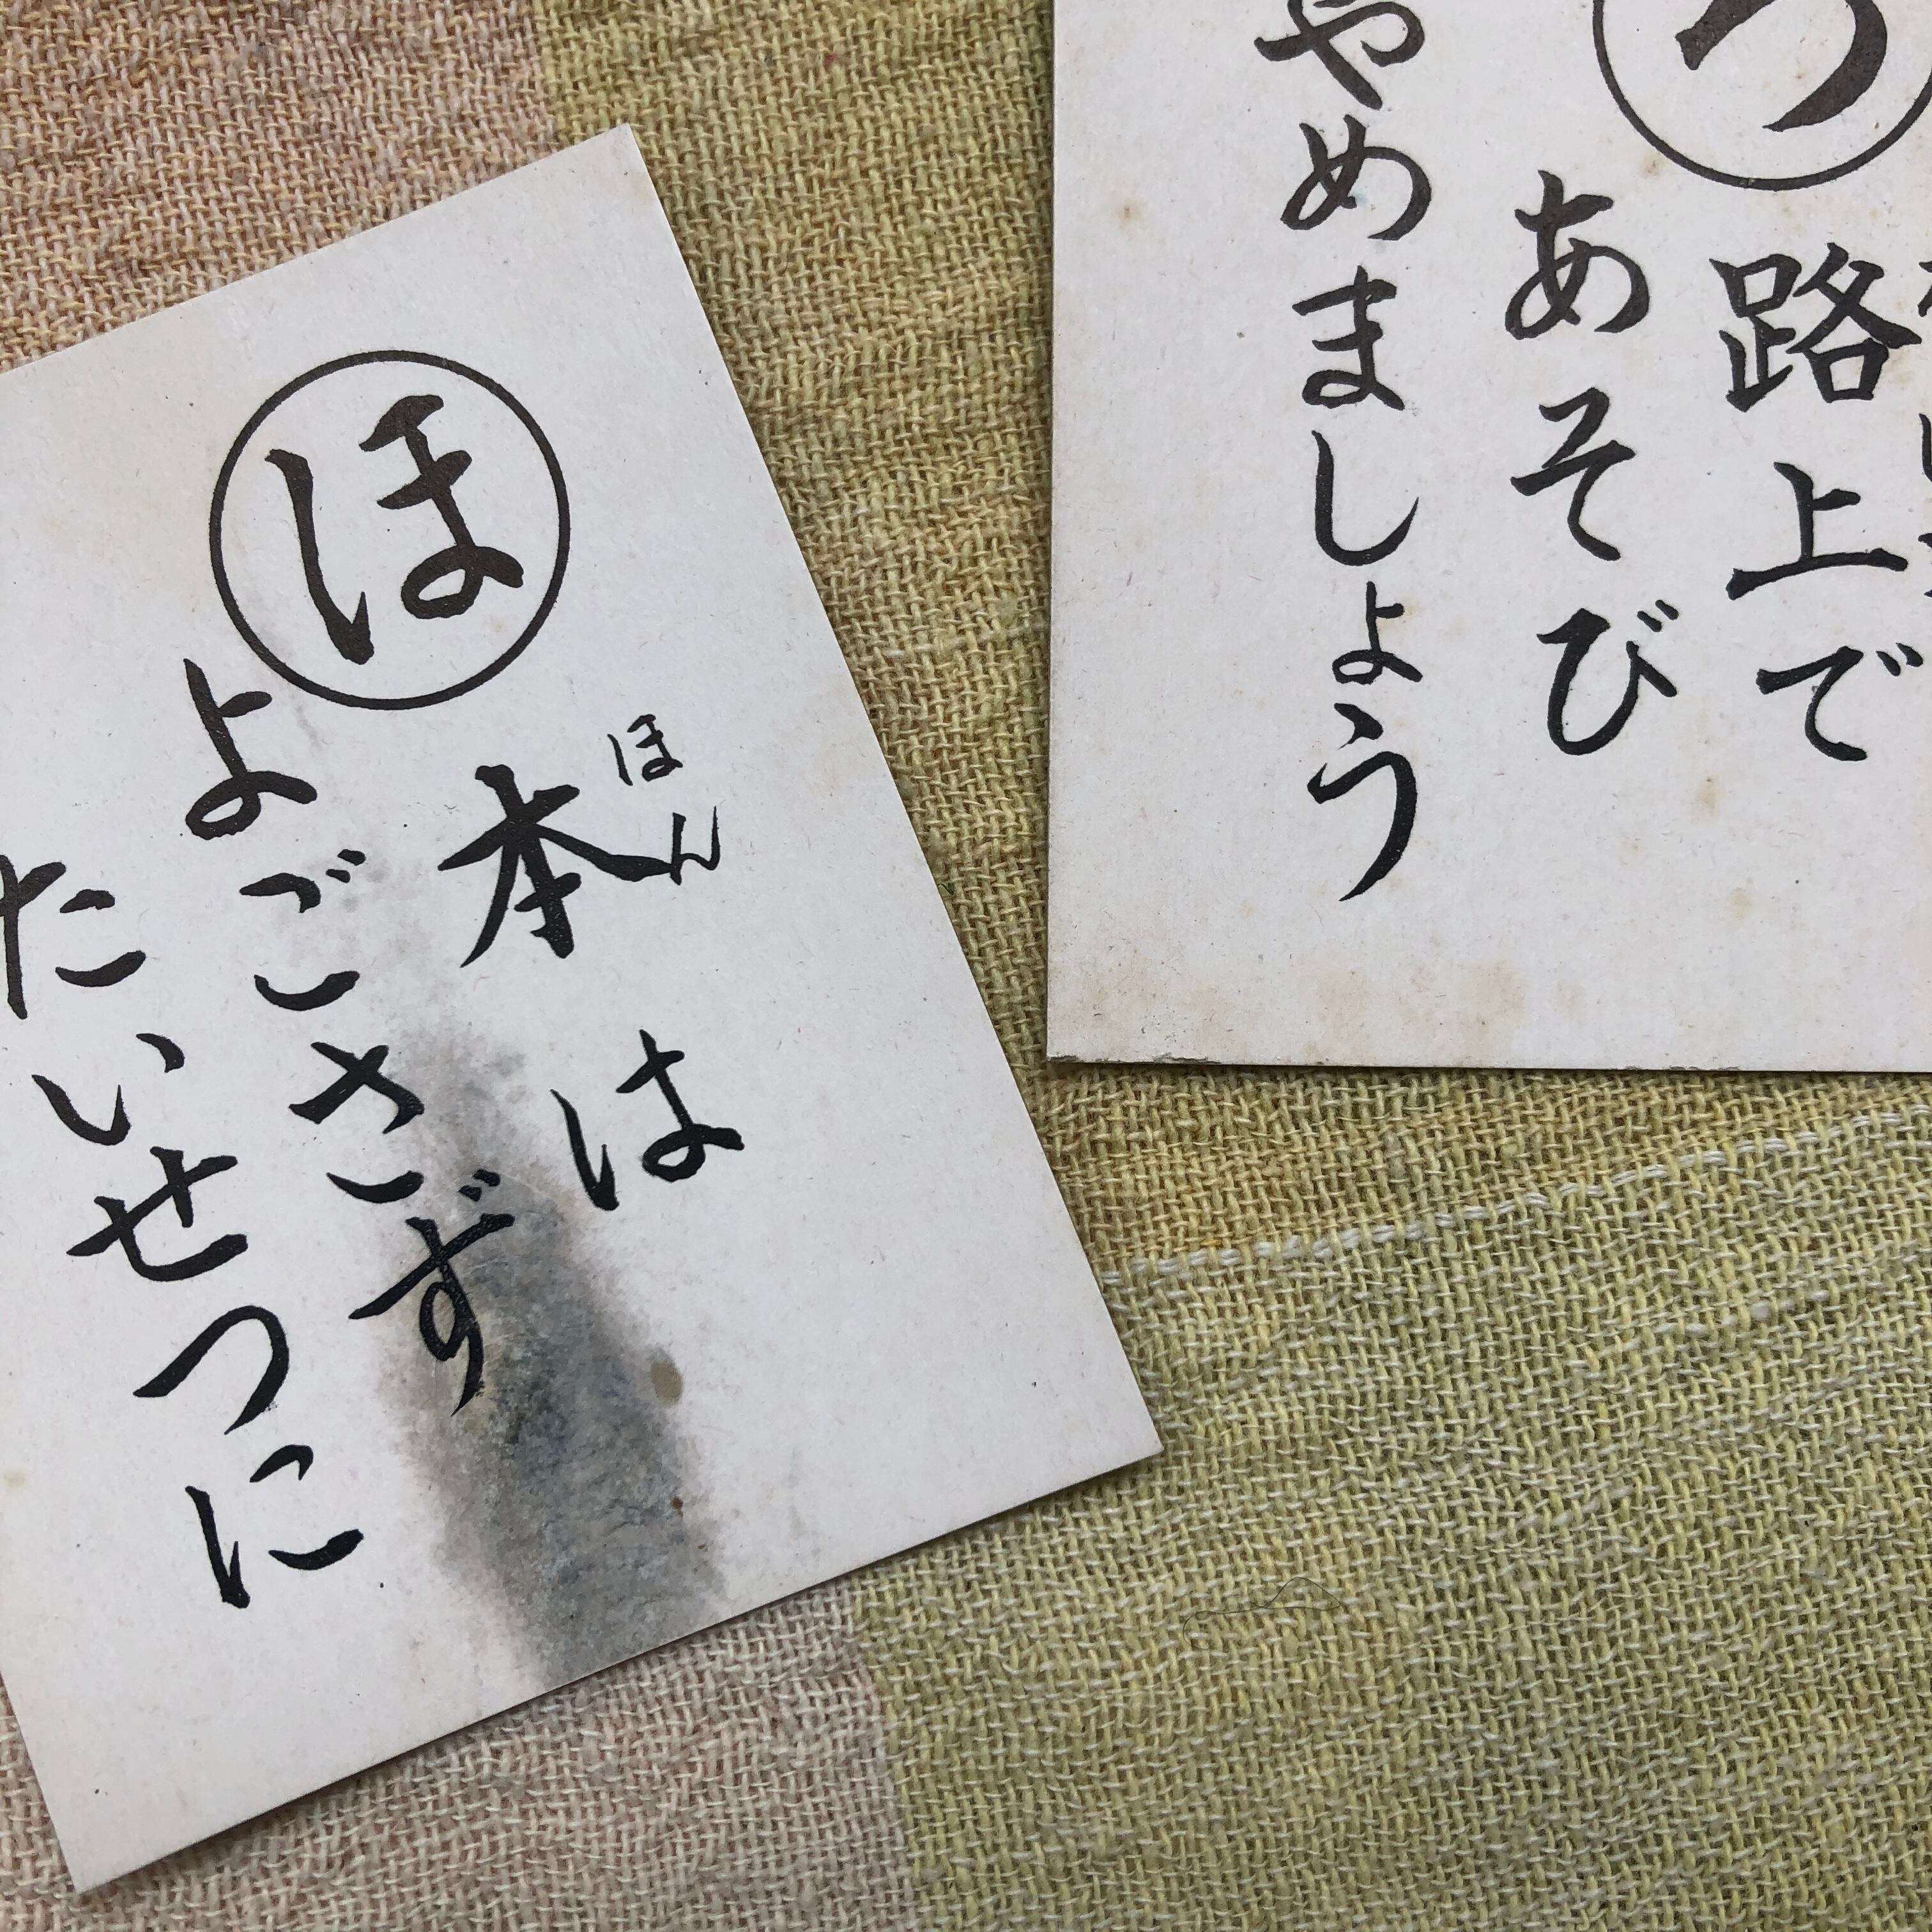 ほ
本は
ほん
よごさず
たいせつに
ろ
路上で
あそび
やめましょう